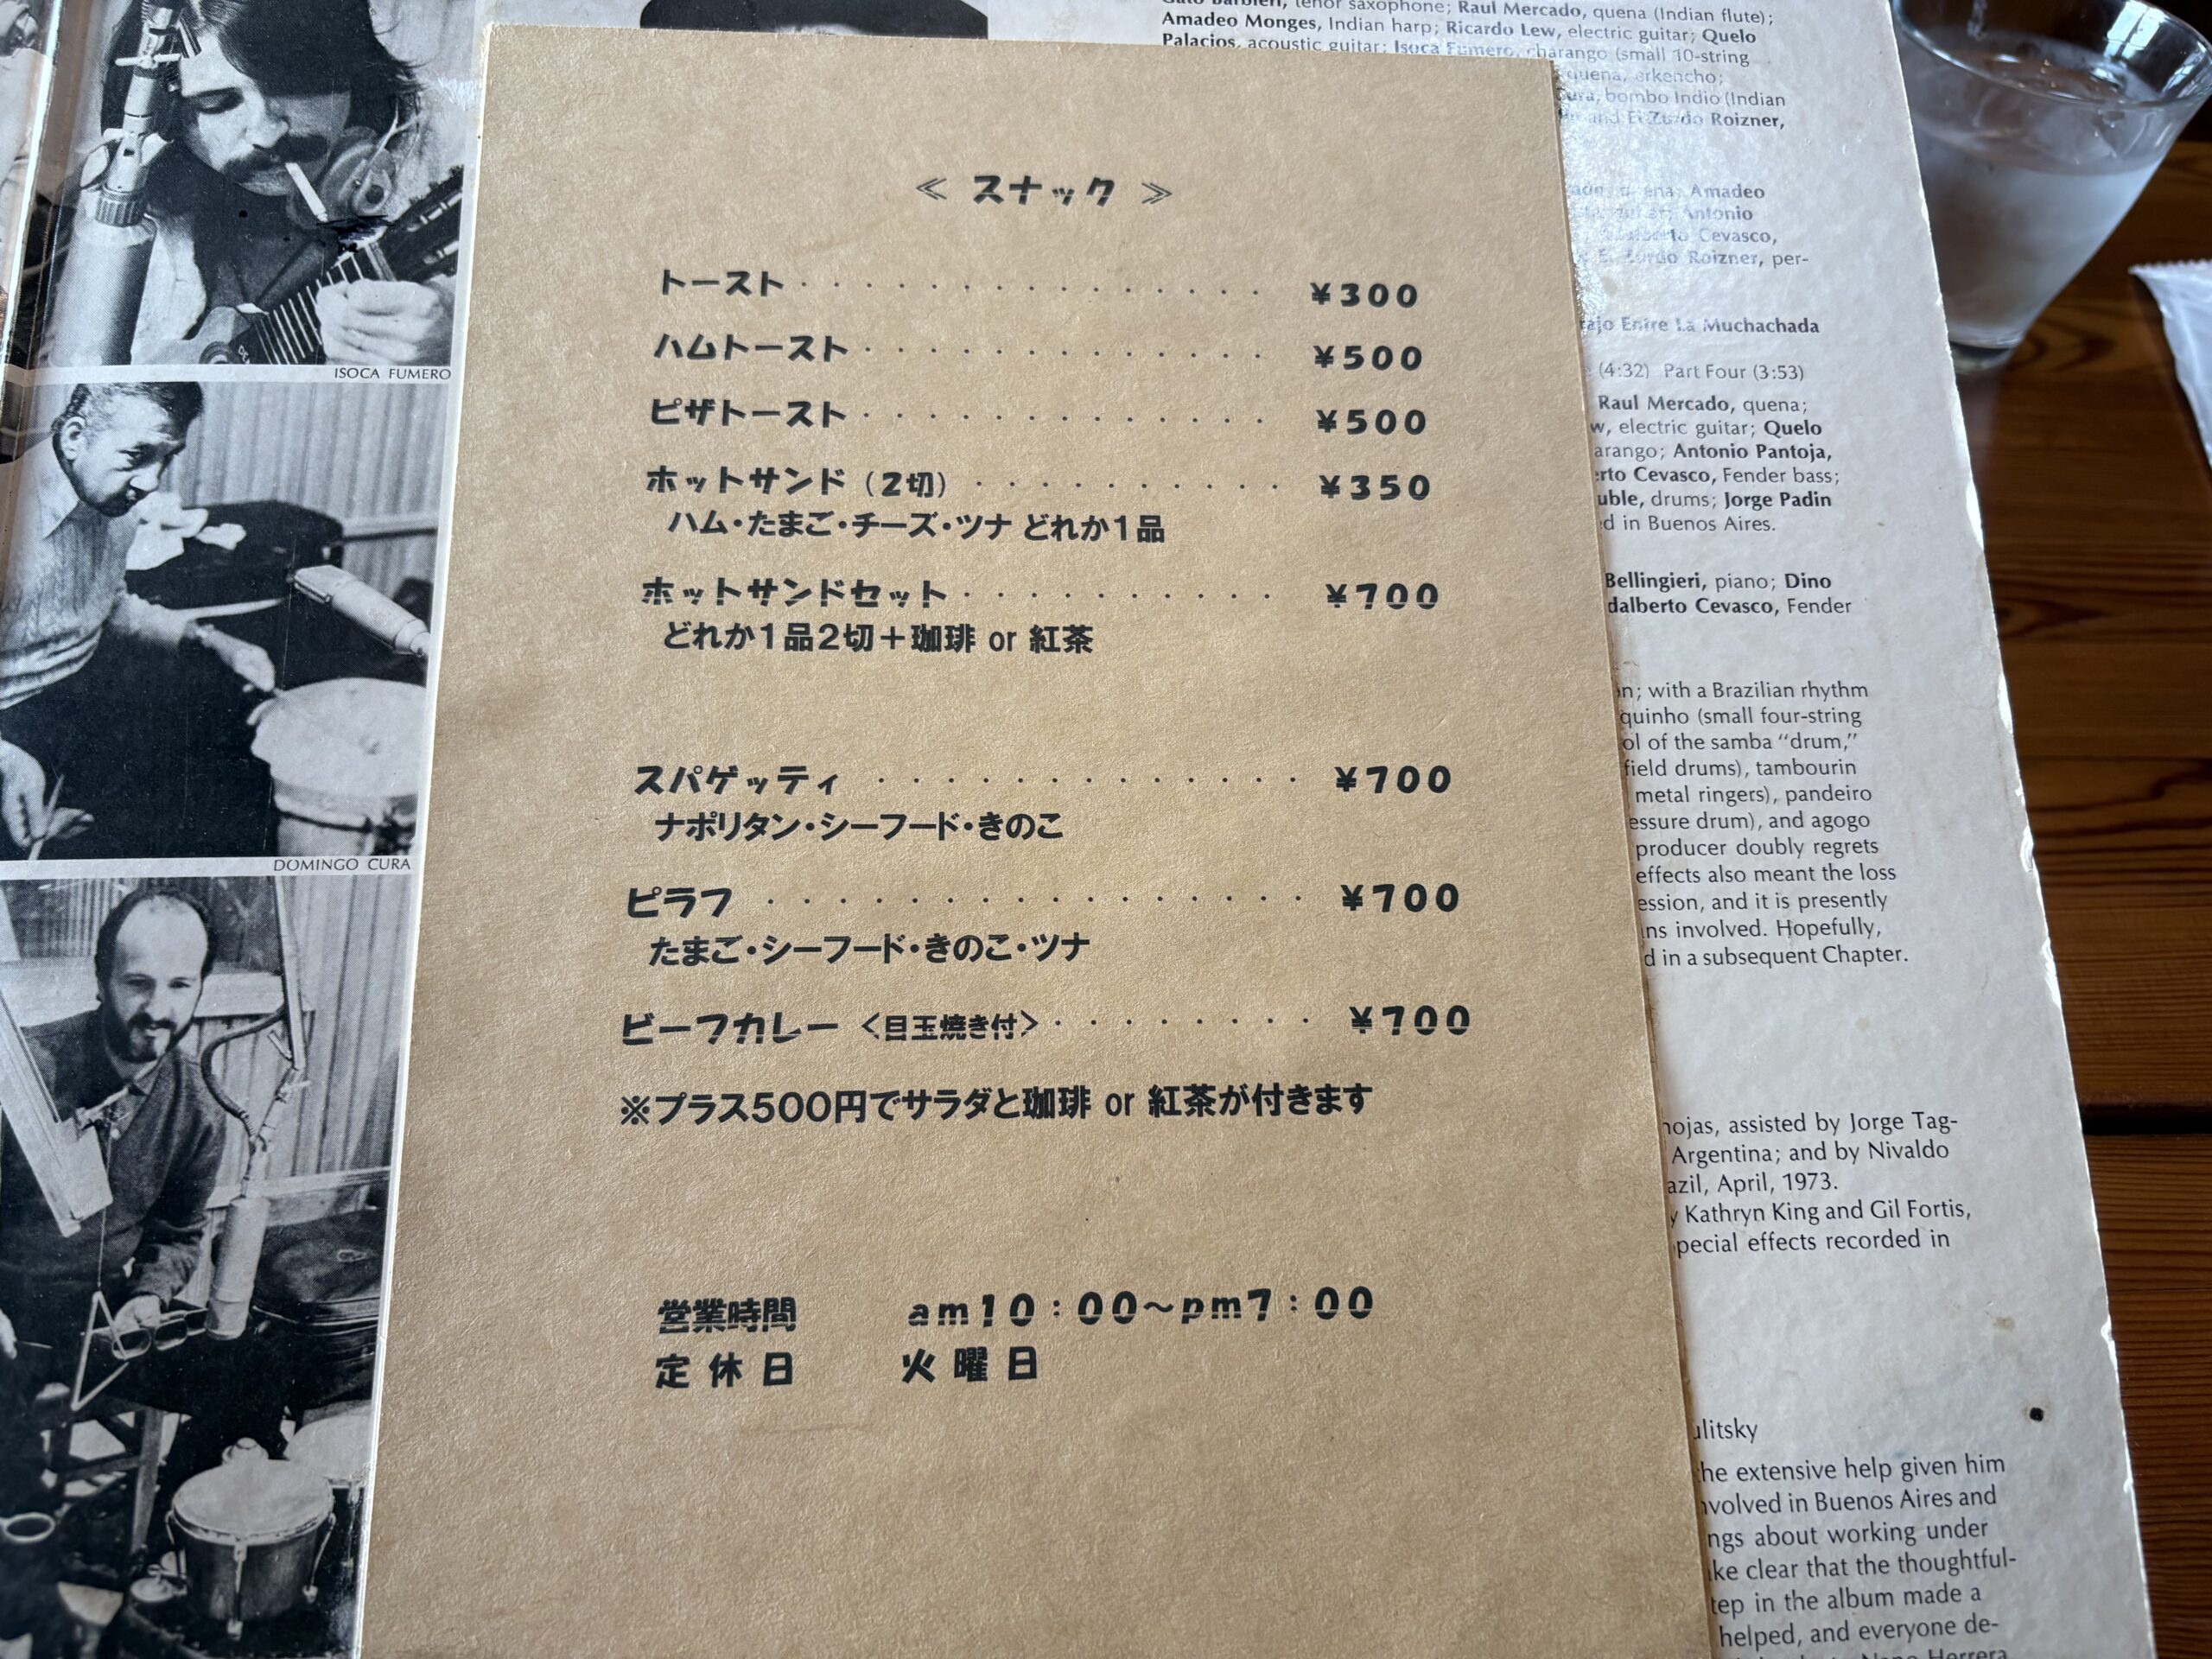 Gato Barbieri, tenor saxophone; Raul Mercado, quena (Indian flute);
Amadeo Monges, Indian harp; Ricardo Lew, electric guitar; Quelo
Palacios, acoustic guitar; Isoca Fumero, charango (small 10-string
quena, erkencho;
bombo Indio (Indian
and El Zurdo Roizner,
Amadeo
Antonio
Cevasco,
El Zurdo Roizner, per-
Entre La Muchachada
(4:32) Part Four (3:53)
Raul Mercado, quena;
electric guitar; Quelo
Antonio Pantoja,
Cevasco, Fender bass;
drums; Jorge Padin
in Buenos Aires.
Bellingieri, piano; Dino
Cevasco, Fender
with a Brazilian rhythm
(small four-string
of the samba “drum,”
field drums), tambourin
metal ringers), pandeiro
drum), and agogo
producer doubly regrets
effects also meant the loss
and it is presently
involved. Hopefully,
in a subsequent Chapter.
assisted by Jorge Tag-
Argentina; and by Nivaldo
April, 1973.
Kathryn King and Gil Fortis,
effects recorded in
the extensive help given him
in Buenos Aires and
about working under
clear that the thoughtful-
in the album made a
helped, and everyone de-
ISOCA FUMERO
DOMINGO CURA
≪ スナック ≫
トースト・・・・・・・・・・・・・・・ ¥300
ハムトースト・・・・・・・・・・・・・ ¥500
ピザトースト・・・・・・・・・・・・・ ¥500
ホットサンド（2切）・・・・・・・・・・ ¥350
ハム・たまご・チーズ・ツナ どれか1品
ホットサンドセット・・・・・・・・・・ ¥700
どれか1品2切＋珈琲 or 紅茶
スパゲッティ ・・・・・・・・・・・・・ ¥700
ナポリタン・シーフード・きのこ
ピラフ ・・・・・・・・・・・・・・・ ¥700
たまご・シーフード・きのこ・ツナ
ビーフカレー 〈目玉焼き付〉・・・・・・・・ ¥700
※プラス500円でサラダと珈琲 or 紅茶が付きます
営業時間 am10：00～pm7：00
定 休 日 火 曜 日